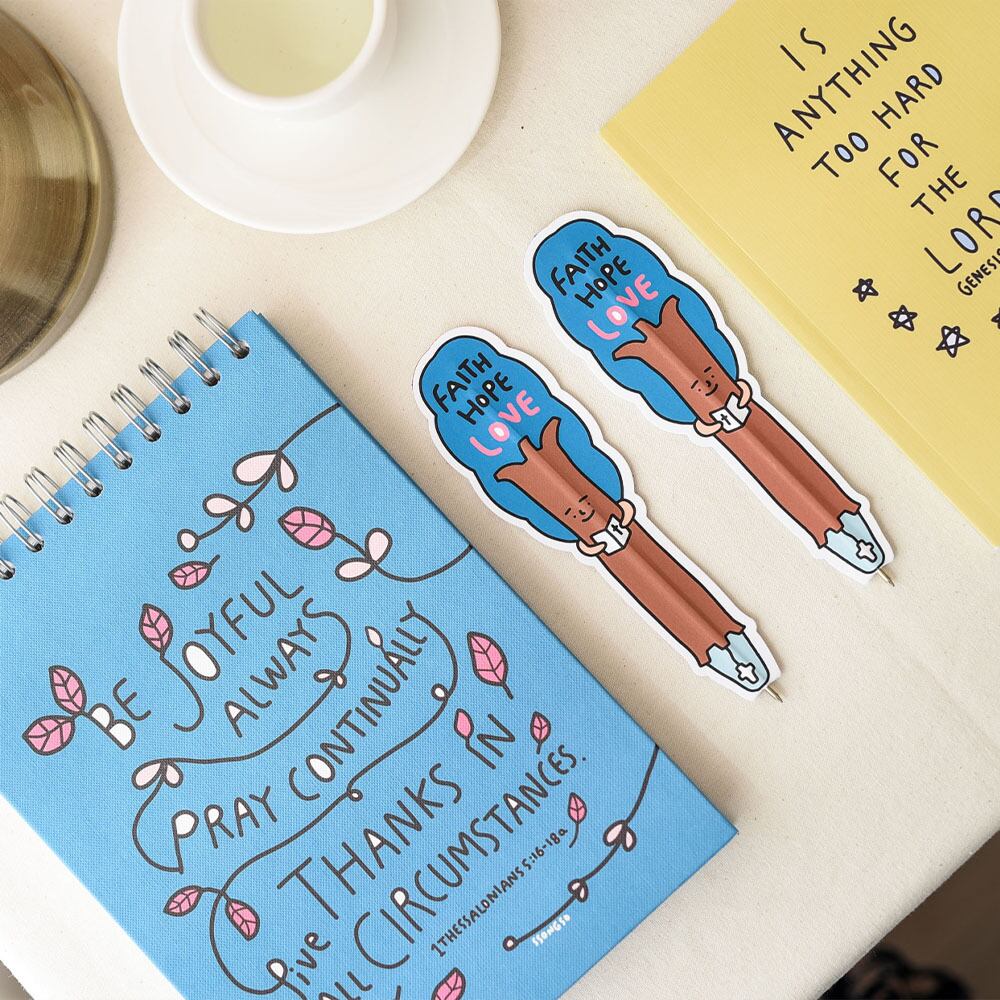 IS
ANYTHING
TOO HARD
FOR
THE
LORD
FAITH
HOPE
LOVE
FAITH
HOPE
LOVE
BE JOYFUL
ALWAYS
PRAY CONTINUALLY
Give THANKS IN
ALL CIRCUMSTANCES.
1 THESSALONIANS 5:16-18a
SSONGSO